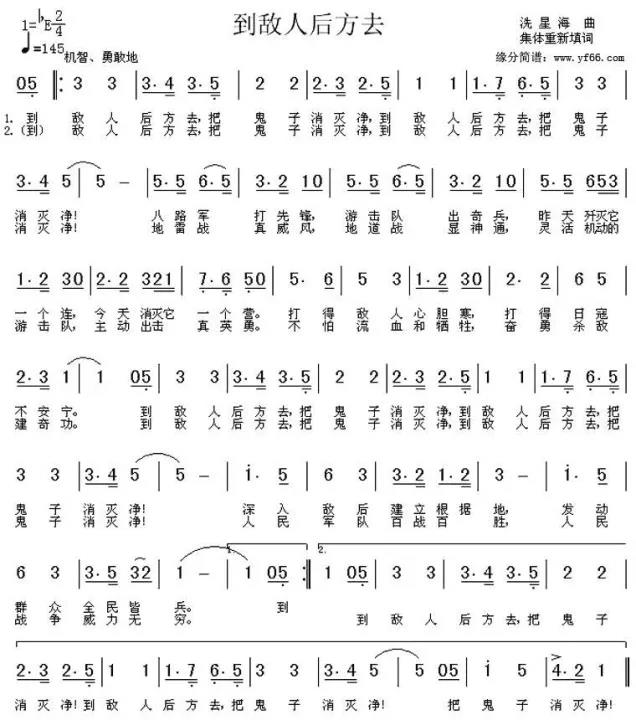 到敌人后方去
1=♭E 2/4
♩=145
机智、勇敢地
洗星海 曲
集体重新填词
缘分简谱：www.yf66.com
05 ‖: 3 3 | 3·4 3·5 | 2 2 | 2·3 2·5 | 1 1 | 1·7 6·5 | 3 3 |
1. 到 敌 人 后方去,把 鬼 子 消灭净,到 敌 人 后方去,把 鬼 子
2. (到) 敌 人 后方去,把 鬼 子 消灭净,到 敌 人 后方去,把 鬼 子
3·4 5 | 5 － | 5·5 6·5 | 3·2 10 | 5·5 6·5 | 3·2 10 | 5·5 653 |
消灭净! 八路军 打先锋, 游击队 出奇兵, 昨天歼灭它
消灭净! 地雷战 真威风, 地道战 显神通, 灵活机动的
1·2 30 | 2·2 321 | 7·6 50 | 5· 6 | 5 3 | 2·3 10 | 2· 2 | 6 5 |
一个连, 今天消灭它 一个营。 打得敌人心胆寒, 打得日寇
游击队, 主动出击 真英勇。 不怕流血和牺牲, 奋勇杀敌
2·3 1 | 1 05 | 3 3 | 3·4 3·5 | 2 2 | 2·3 2·5 | 1 1 | 1·7 6·5 |
不安宁。 到 敌 人 后方去,把 鬼 子 消灭净,到 敌 人 后方去,把
建奇功。 到 敌 人 后方去,把 鬼 子 消灭净,到 敌 人 后方去,把
3 3 | 3·4 5 | 5 － | i· 5 | 6 3 | 3·2 1·2 | 3 － | i· 5 |
鬼 子 消灭净! 深入敌后建立根据地, 发动
鬼 子 消灭净! 人民军队百战百胜, 人民
6 3 | 3·5 32 | 1 － | 1. 1 05 :‖ 2. 1 05 | 3 3 | 3·4 3·5 | 3 3 |
群众全民皆兵。 到
战争威力无穷。 到 敌 人 后方去,把 鬼 子
2·3 2·5 | 1 1 | 1·6 6·5 | 3 3 | 3·4 5 | 5 05 | i 5 | 4·2 1 ‖
消灭净!到 敌 人 后方去,把 鬼 子 消灭净! 把 鬼 子 消灭净!